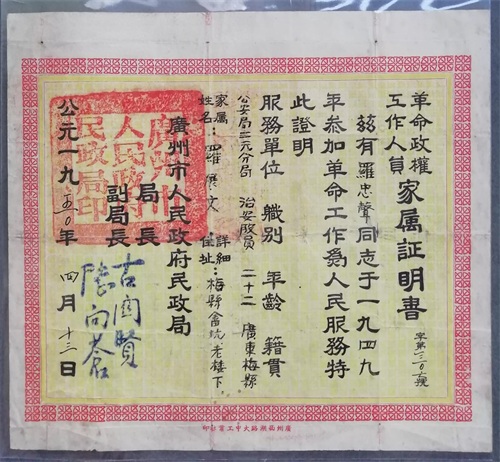 革命政權
工作人員
家属証明書
字第一三〇六號
兹有羅忠聲同志于一九四九
年参加革命工作為人民服務特
此證明
服務單位 職别 年齡 籍貫
公安局三元分局 治安股員 二十二 廣東梅縣
家属
姓名：羅展文
詳細
住址：梅縣畲坑老樓下
廣州市人民政府民政局
局長
副局長
古關賢
陳向蒼
公元一九五〇年 四月 十三日
廣州市
人民政府
民政局印